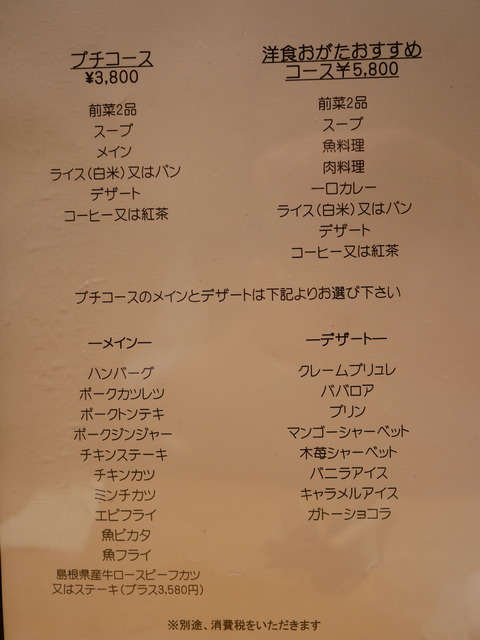 プチコース
¥3,800
前菜2品
スープ
メイン
ライス(白米)又はパン
デザート
コーヒー又は紅茶
洋食おがたおすすめ
コース￥5,800
前菜2品
スープ
魚料理
肉料理
一口カレー
ライス(白米)又はパン
デザート
コーヒー又は紅茶
プチコースのメインとデザートは下記よりお選び下さい
―メイン―
ハンバーグ
ポークカツレツ
ポークトンテキ
ポークジンジャー
チキンステーキ
チキンカツ
ミンチカツ
エビフライ
魚ピカタ
魚フライ
島根県産牛ロースビーフカツ
又はステーキ(プラス3,580円)
―デザート―
クレームブリュレ
ババロア
プリン
マンゴーシャーベット
木苺シャーベット
バニラアイス
キャラメルアイス
ガトーショコラ
※別途、消費税をいただきます